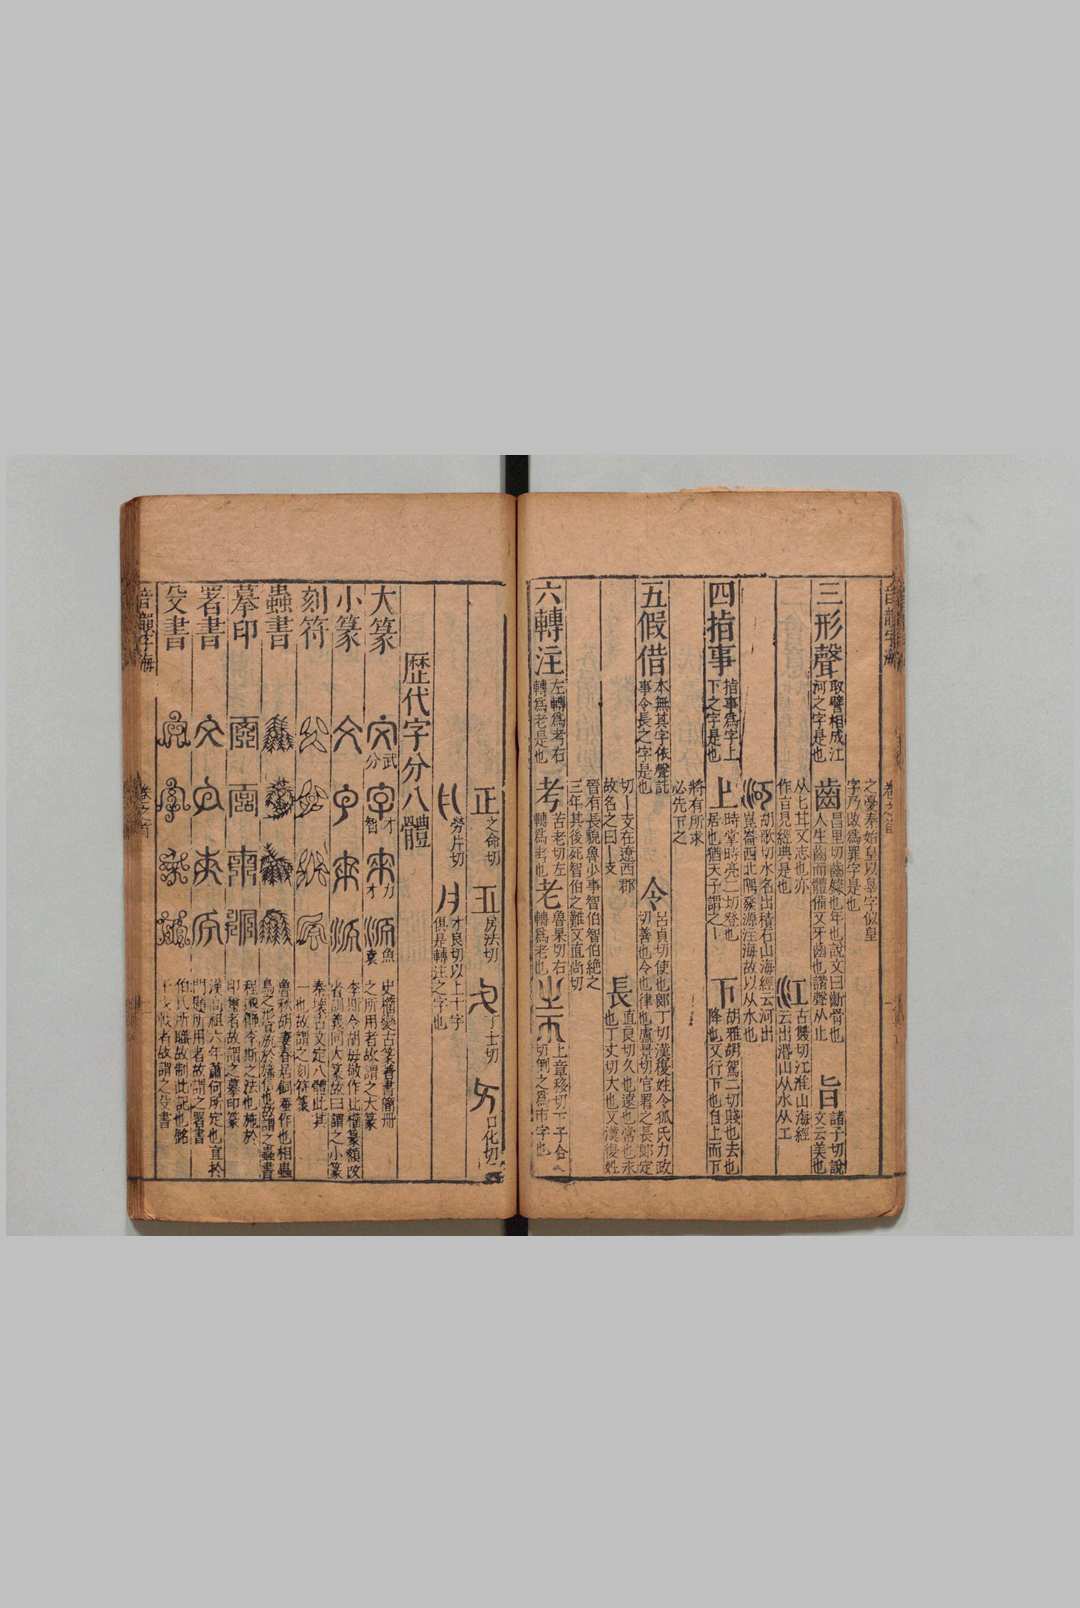 之憂秦始皇以辠字似皇
字乃改為罪字是也
三形聲
取譬相成江
河之字是也
齒
昌里切齒
人生齒而體備又牙齒也諧聲从止
旨
諸子切說
文云美也
从匕甘又志也亦
作㫖見經典是也
江
古雙切江淮山海經
云出㟭山从水从工
河
胡歌切水名出積石山海經云河出
崑崙西北隅發源注海故以从水也
四指事
指事為字上
下之字是也
上
時掌時亮二切登也
居也猶天子謂之上
下
胡雅胡駕二切賤也去也
降也又行下也自上而下
將有所求
必先下之
五假借
本無其字依聲託
事令長之字是也
令
呂貞切使也郎丁切漢複姓令狐氏力政
切善也令也律也盧景切官署之長郎定
切丨支在遼西郡
故名之曰丨支
長
直良切久也遠也常也永
也丁丈切大也又漢複姓
晉有長貌魯少事智伯智伯絶之
三年其後死智伯之難又直尚切
六轉注
左轉為考右
轉為老是也
考
苦老切左
轉為考也
老
魯杲切右
轉為老也
上章移切下子合
切倒之為帀字也
正
之命切
房法切
子士切
口化切
爿
片切
才良切以上十字
俱是轉注之字也
歷代字分八體
大篆
武分
才智
力才
魚袁
史籀變古篆著書簡冊
之所用者故謂之大篆
小篆
李斯令胡毋敬作比籀篆頗改
省謂義同大篆故曰謂之小篆
刻符
秦壞古文定八體此其
一也故謂之刻符篆
蟲書
魯秋胡妻春居飼蠶作也相蟲
鳥之形旗於旛信也故謂之蟲書
摹印
程邈飾李斯之法也施於
印璽者故謂之摹印篆
署書
漢高祖六年蕭何所定也直於
門題所用者故謂之署書
殳書
伯氏所職故制此記也銘
於戈戟者故謂之殳書
音韻字海
卷之首